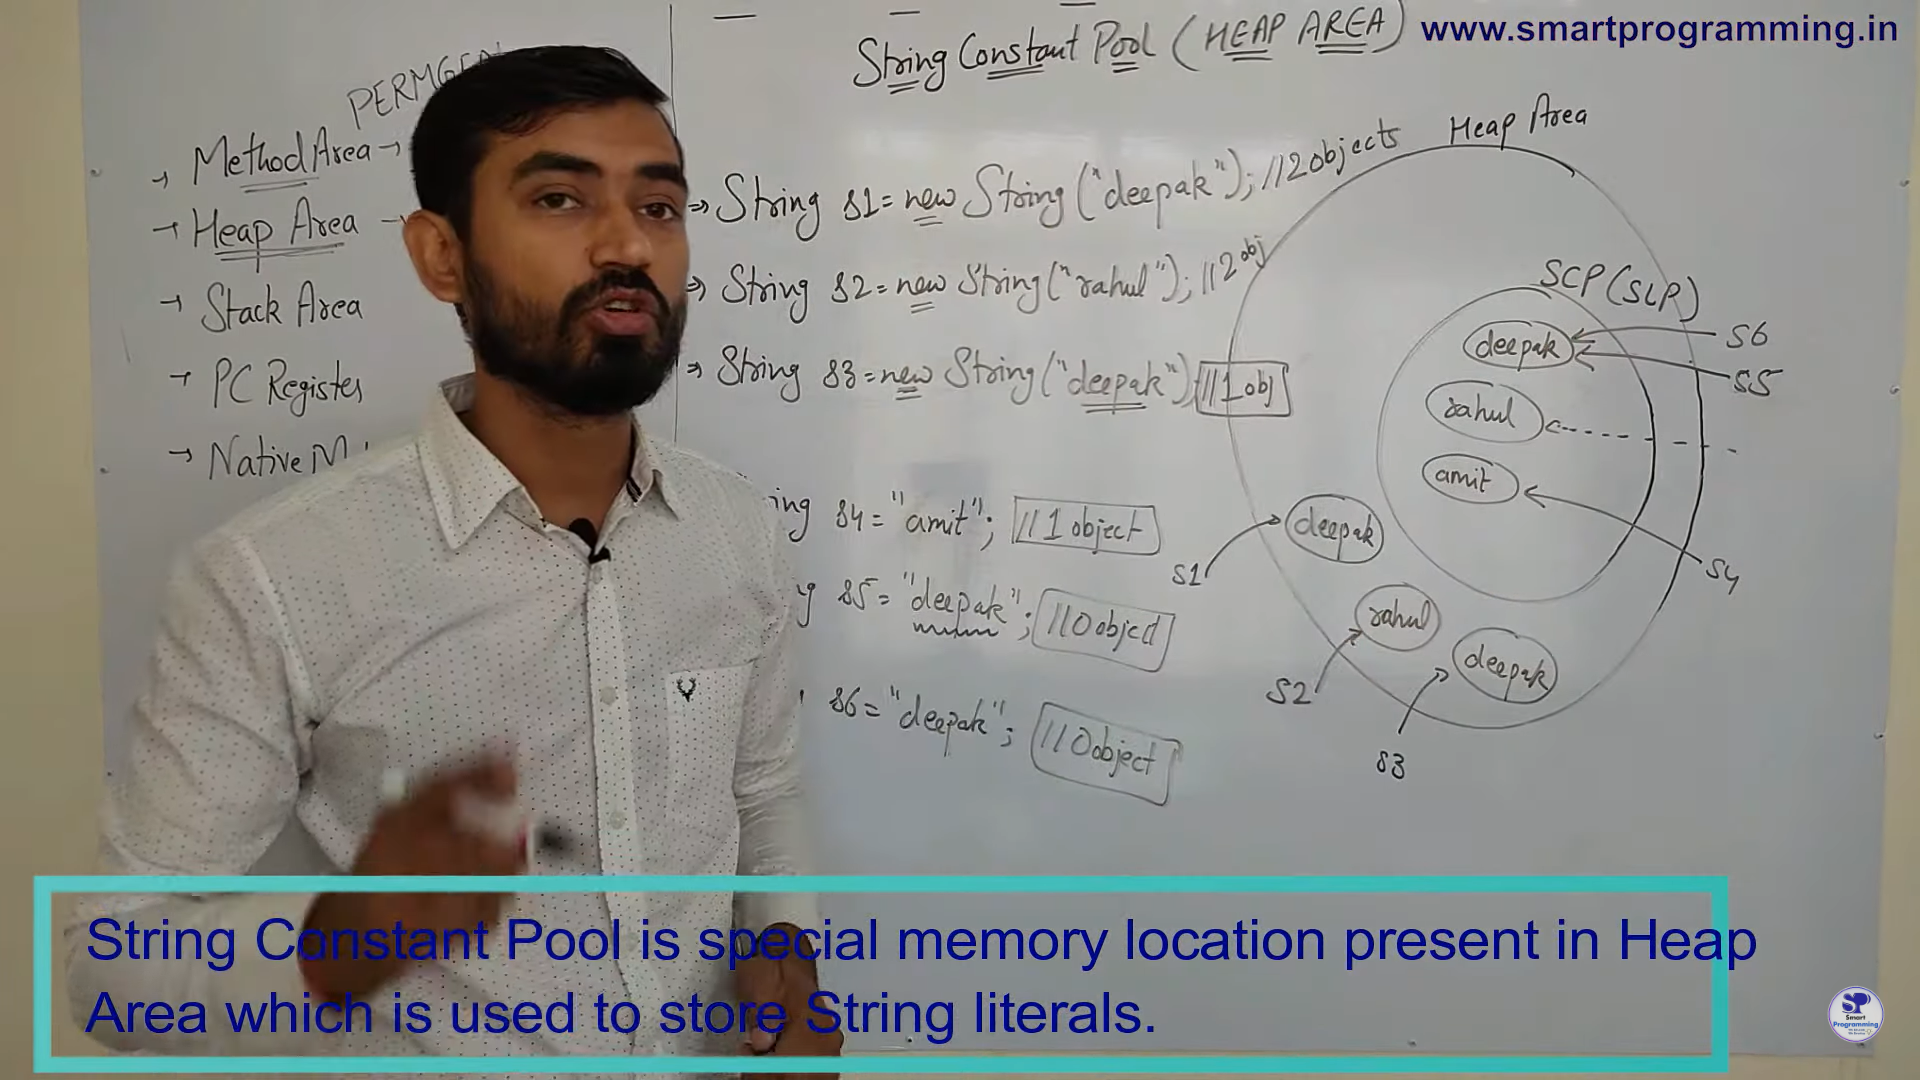 www.smartprogramming.in
String Constant Pool (HEAP AREA)
→ Method Area →
→ Heap Area
→ Stack Area
→ PC Register
→ Native
⇒ String s1 = new String("deepak"); //2 objects
⇒ String s2 = new String("rahul"); //2 obj
⇒ String s3 = new String("deepak"); //1 obj
s4 = "amit"; //1 object
s5 = "deepak"; //0 object
s6 = "deepak"; //0 object
Heap Area
SCP (SLP)
deepak
s6
s5
rahul
amit
s4
deepak
s1
rahul
s2
deepak
s3
String Constant Pool is special memory location present in Heap
Area which is used to store String literals.
SP
Smart
Programming